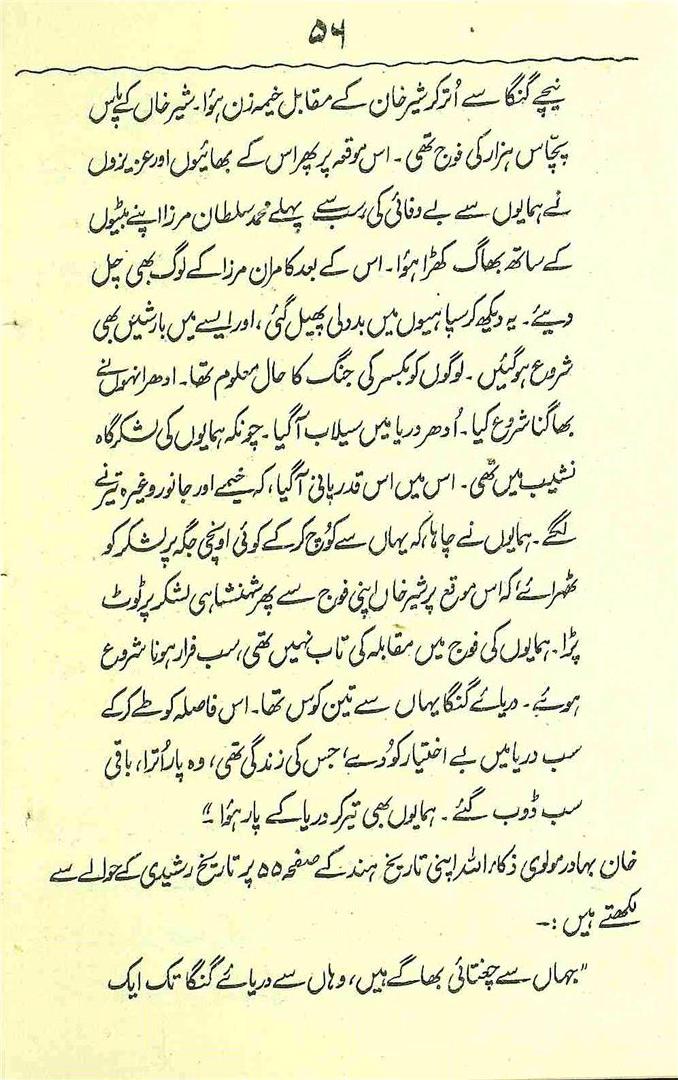 ۵۶
نیچے گنگا سے اُتر کر شیر خان کے مقابل خیمہ زن ہؤا۔ شیر خاں کے پاس
پچّاس ہزار کی فوج تھی ۔ اس موقعہ پر پھر اس کے بھائیوں اور عزیزوں
نے ہمایوں سے بے وفائی کی سب سے پہلے محمد سلطان مرزا اپنے بیٹوں
کے ساتھ بھاگ کھڑا ہؤا۔ اس کے بعد کامران مرزا کے لوگ بھی چل
دیئے۔ یہ دیکھ کر سپاہیوں میں بددلی پھیل گئی ، اور ایسے میں بارشیں بھی
شروع ہوگئیں ۔ لوگوں کو بکسر کی جنگ کا حال معلوم تھا۔ ادھر انہوں نے
بھاگنا شروع کیا ۔ اُدھر دریا میں سیلاب آگیا ۔ چونکہ ہمایوں کی لشکر گاہ
نشیب میں تھی ۔ اس میں اس قدر پانی آگیا ، کہ خیمے اور جانور وغیرہ تیرنے
لگے ۔ ہمایوں نے چاہا کہ یہاں سے کُوچ کر کے کوئی اونچی جگہ پر لشکر کو
ٹھہرائے کہ اس موقع پر شیر خاں اپنی فوج سے پھر شہنشاہی لشکر پر ٹوٹ
پڑا۔ ہمایوں کی فوج میں مقابلہ کی تاب نہیں تھی ، سب فرار ہونا شروع
ہوئے ۔ دریائے گنگا یہاں سے تین کوس تھا۔ اس فاصلہ کو طے کر کے
سب دریا میں بے اختیار کُودے، جس کی زندگی تھی ، وہ پار اُترا ، باقی
سب ڈوب گئے ۔ ہمایوں بھی تیر کر دریا کے پار ہؤا ۔"
خان بہادر مولوی ذکاء اللہ اپنی تاریخ ہند کے صفحہ ۵۵ پر تاریخ رشیدی کے حوالے سے
لکھتے ہیں :۔
"جہاں سے چغتائی بھاگے ہیں ، وہاں سے دریائے گنگا تک ایک